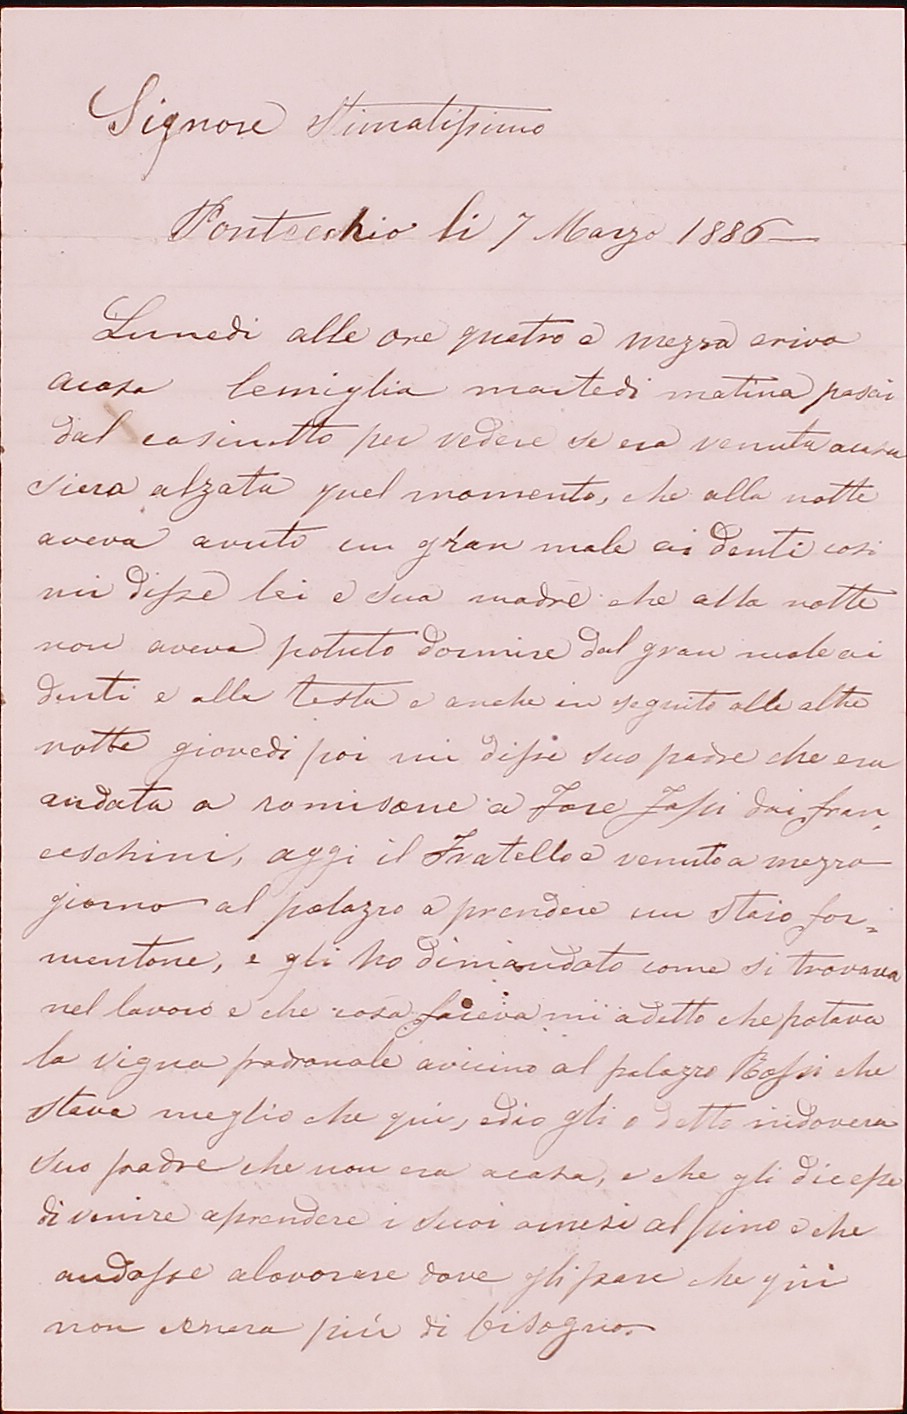 Signore Stimatissimo
Pontecchio li 7 Marzo 1886
Lunedi alle ore quatro e mezza arivo
acasa lemiglia martedi matina pasai
dal casinotto per vedere se era venuta acasa
siera alzata quel momento, che alla notte
aveva avuto un gran male ai denti cosi
mi disse lei e sua madre che alla notte
non aveva potuto dormire dal gran male ai
denti e alla testa e anche in seguito alle altre
notte giovedi poi mi disse suo padre che era
andata a a dai fran
ceschini, oggi il Fratello e venuto a mezzo
giorno al palazzo a prendere un staio for=
mentone, e gli ho dimandato come si trovava
nel lavoro e che cosa faceva mi a detto che potava
la vigna padronale avicino al palazzo Rossi che
stava meglio che qui, edio gli o detto indovera
suo padre che non era acasa, e che gli dicesse
di venire aprendere i suoi arnesi al pino e che
andasse alavorare dove gli pare che qui
non cenera più di bisogno.